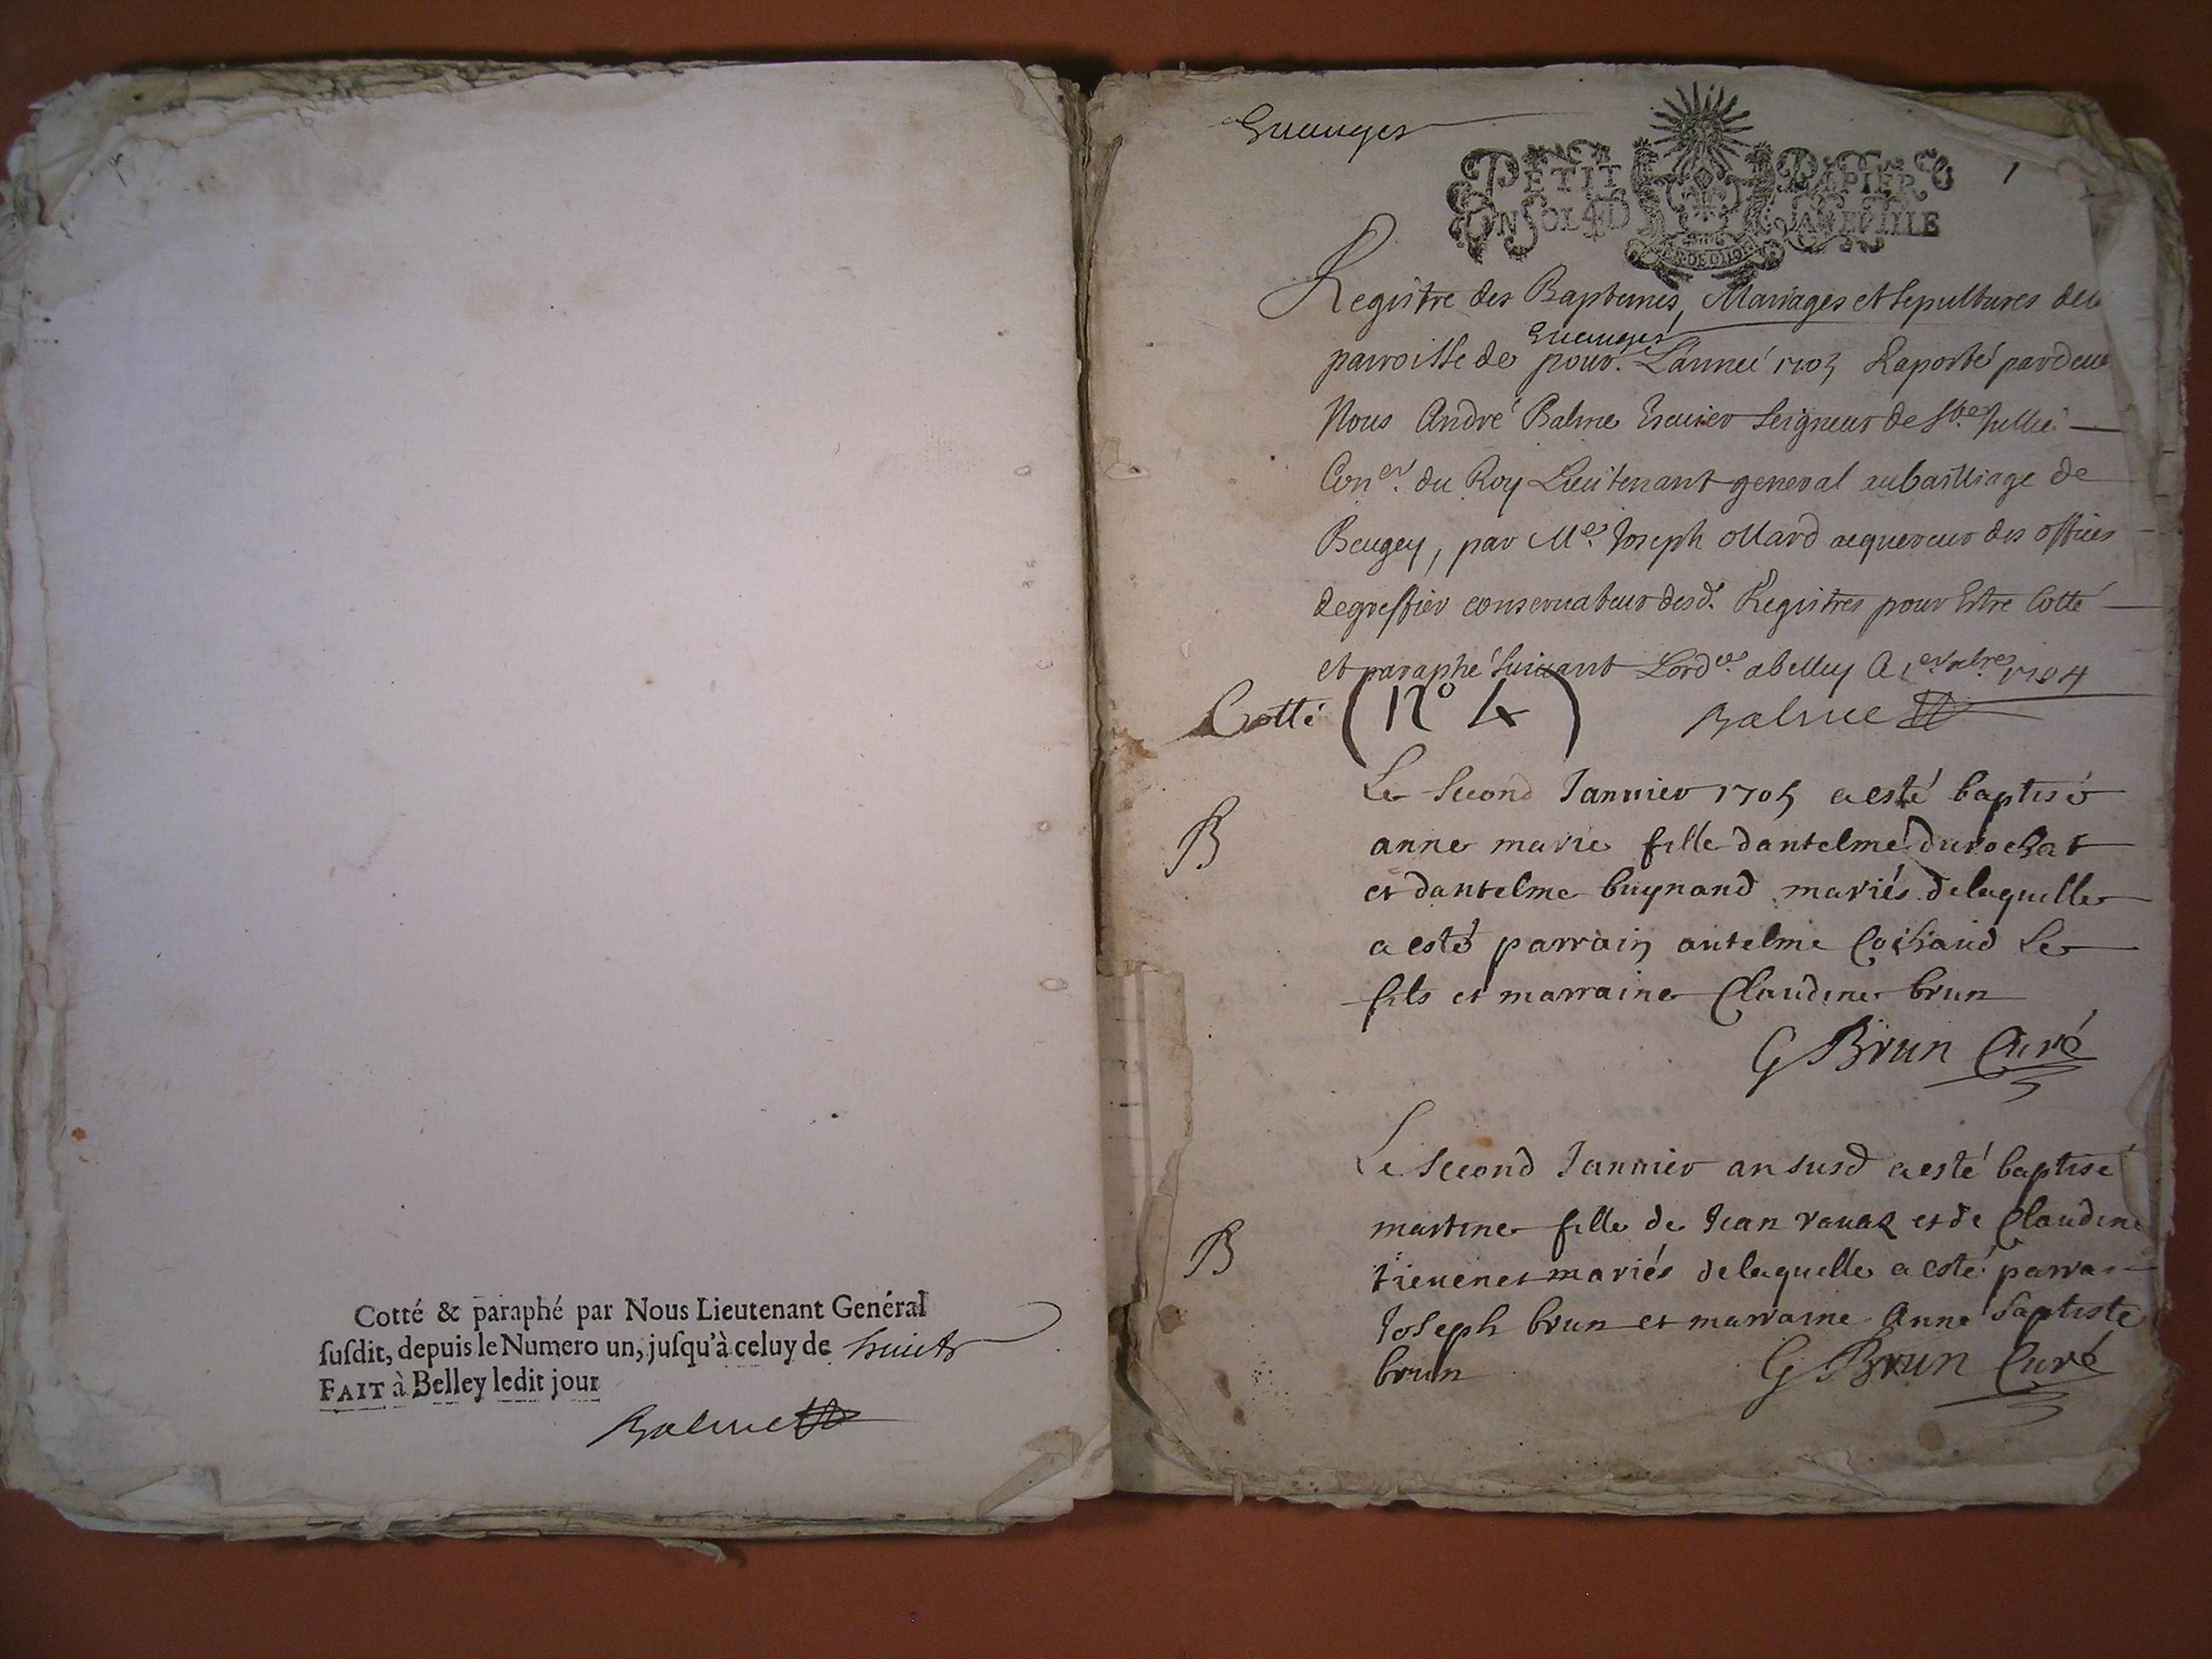 Cotté & paraphé par Nous Lieutenant Genéral
susdit, depuis le Numero un, jusqu'à celuy de huict
FAIT à Belley ledit jour
Balme
PETIT PAPIER
UN SOL 4 D LA FEUILLE
1
Registre des Baptemes, Mariages et sepultures de la
parroisse de pour L'année 1705 Raporté pardeu
Nous André Balme Escuier Seigneur de Ste Jullie
Con.er du Roy Lieutenant general au bailliage de
Beugey, par Me Joseph ollard acquereur des offices
de greffier conservateur desd. Registres pour Estre Cotté
et paraphé suivant Lord.ce a belley 1704
Cotté (N° 4) Balme
Le second Januier 1705 a esté baptisé
B
anne marie fille dantelme durochat
et dantelme buynand mariés de laquelle
a esté parrain antelme Cochaud le
fils et marraine Claudine brun
G Brun Curé
Le second Januier an susd a esté baptisé
B
martine fille de Jean rauaz et de Claudine
mariés de laquelle a esté parra
Joseph brun et marraine Anne baptiste
brun G Brun Curé